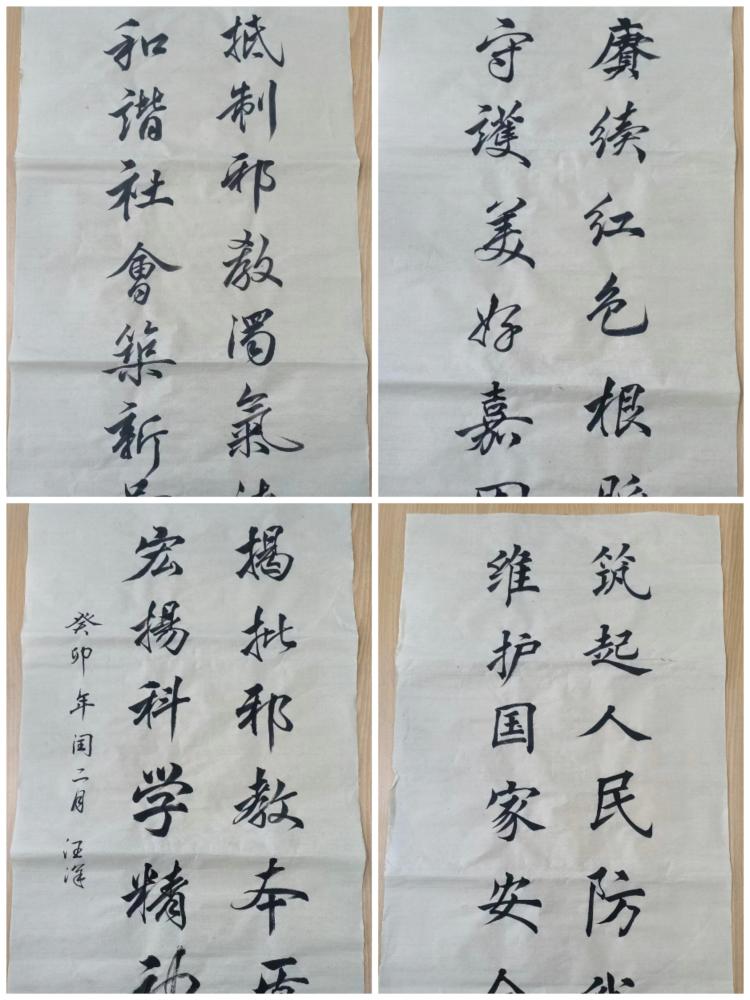 抵制邪教濁氣清
和谐社會築新
赓续红色根脈
守護美好嘉园
揭批邪教本质
宏揚科学精神
癸卯年闰二月 汪洋
筑起人民防线
维护国家安全